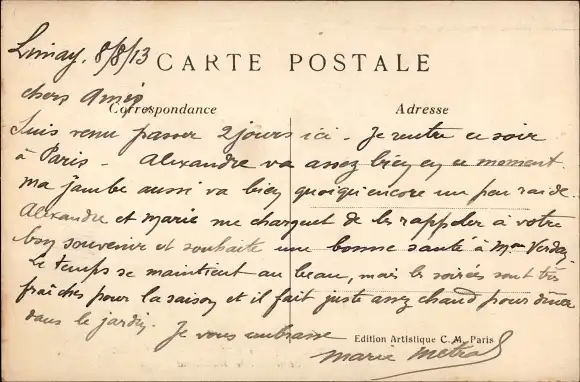 Limay, 8/8/13
CARTE POSTALE
chers Amis,
Correspondance
Adresse
Suis venu passer 2 jours ici - Je rentre ce soir
à Paris - Alexandre va assez bien en ce moment.
Ma jambe aussi va bien quoiqu'encore un peu raide.
Alexandre et Marie me chargent de les rappeler à votre
bon souvenir et souhaite une bonne santé à Mme
Le temps se maintient au beau, mais les soirées sont très
fraîches pour la saison et il fait juste assez chaud pour dîner
dans le jardin. Je vous embrasse
Edition Artistique C. M. Paris
Marie